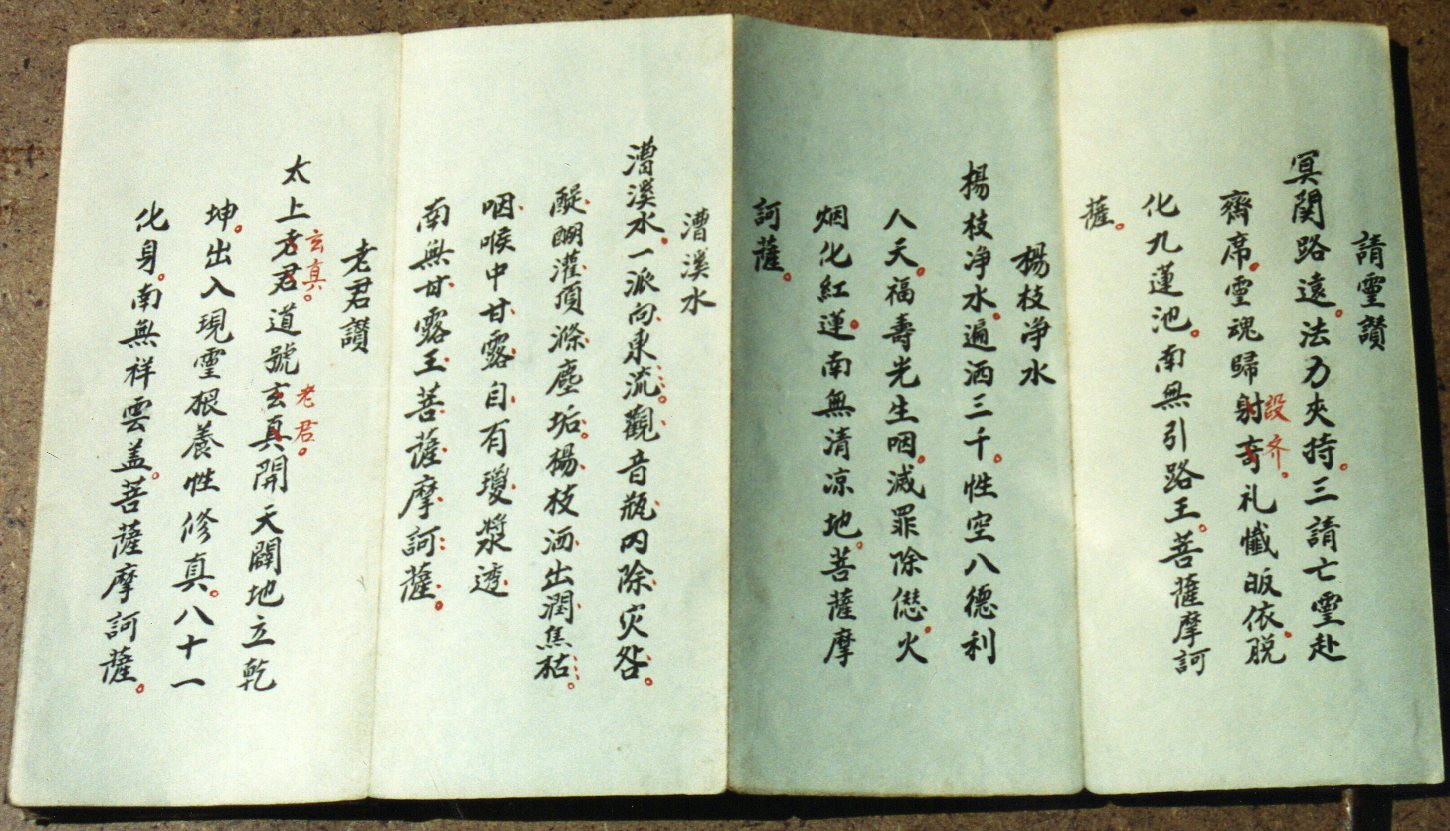 請霊讃
冥関路遠。法力夾持。三請亡霊赴
齋席。霊魂歸射斎。礼懺皈依。脱
設齐
化九蓮池。南無引路王。菩薩摩訶
薩。
楊枝净水
楊枝净水。遍洒三千。性空八德利
人天。福壽光生咽。滅罪除愆。火
烟化紅蓮。南無清凉地。菩薩摩
訶薩。
漕溪水
漕溪水。一派向東流。觀音瓶内除灾咎。
醍醐灌頂滌塵垢。楊枝洒出潤焦枯。
咽喉中甘露自有瓊漿透
南無甘露王菩薩摩訶薩。
老君讃
太上老君道號玄真開天闢地立乾
玄真。
老君。
坤。出入現霊根養性修真。八十一
化身。南無祥雲盖。菩薩摩訶薩。